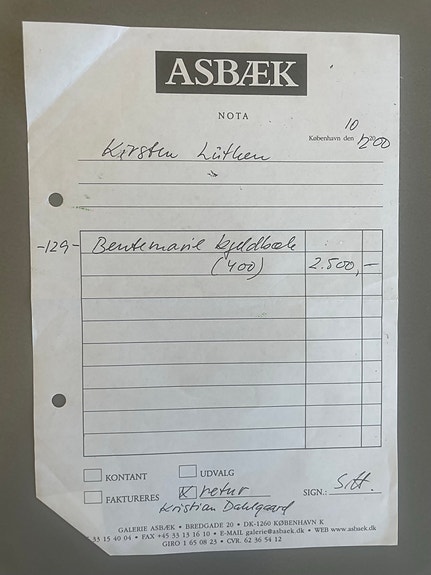 ASBÆK
NOTA
10
København den 12 2000
Kirsten Lüthen
-129- Bentemarie Kjeldbæk
(400) 2.500,-
KONTANT UDVALG
FAKTURERES X retur SIGN.: S.H.
Kristian Dahlgaard
GALERIE ASBÆK • BREDGADE 20 • DK-1260 KØBENHAVN K
33 15 40 04 • FAX +45 33 13 16 10 • E-MAIL galerie@asbaek.dk • WEB www.asbaek.dk
GIRO 1 65 08 23 • CVR. 62 36 54 12